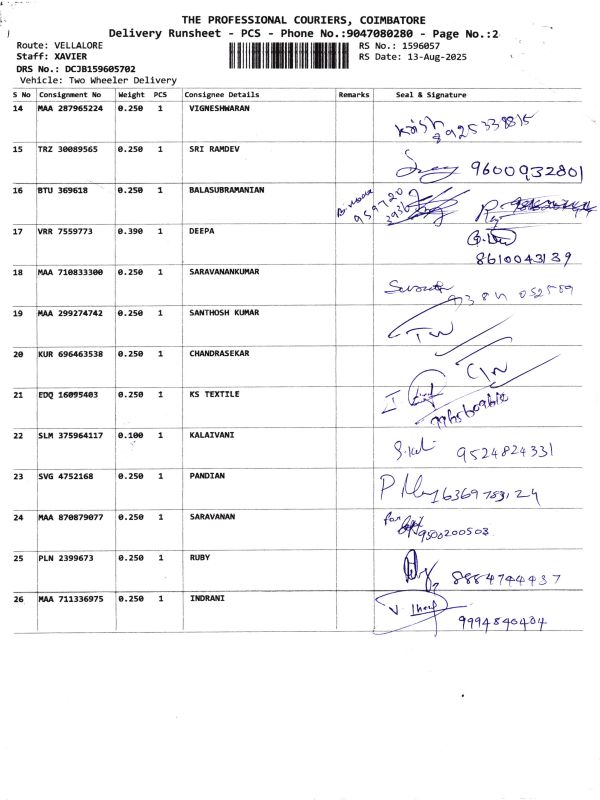 THE PROFESSIONAL COURIERS, COIMBATORE
Delivery Runsheet - PCS - Phone No.:9047080280 - Page No.:2
Route: VELLALORE
RS No.: 1596057
Staff: XAVIER
RS Date: 13-Aug-2025
DRS No.: DCJB159605702
Vehicle: Two Wheeler Delivery
S No Consignment No Weight PCS Consignee Details Remarks Seal & Signature
14 MAA 287965224 0.250 1 VIGNESHWARAN
8925339815
15 TRZ 30089565 0.250 1 SRI RAMDEV
9600932801
16 BTU 369618 0.250 1 BALASUBRAMANIAN
17 VRR 7559773 0.390 1 DEEPA
8610043139
18 MAA 710833300 0.250 1 SARAVANANKUMAR
19 MAA 299274742 0.250 1 SANTHOSH KUMAR
20 KUR 696463538 0.250 1 CHANDRASEKAR
21 EDQ 16095403 0.250 1 KS TEXTILE
22 SLM 375964117 0.100 1 KALAIVANI
9524824331
23 SVG 4752168 0.250 1 PANDIAN
24 MAA 870879077 0.250 1 SARAVANAN
9500200503
25 PLN 2399673 0.250 1 RUBY
8884744437
26 MAA 711336975 0.250 1 INDRANI
9994840404